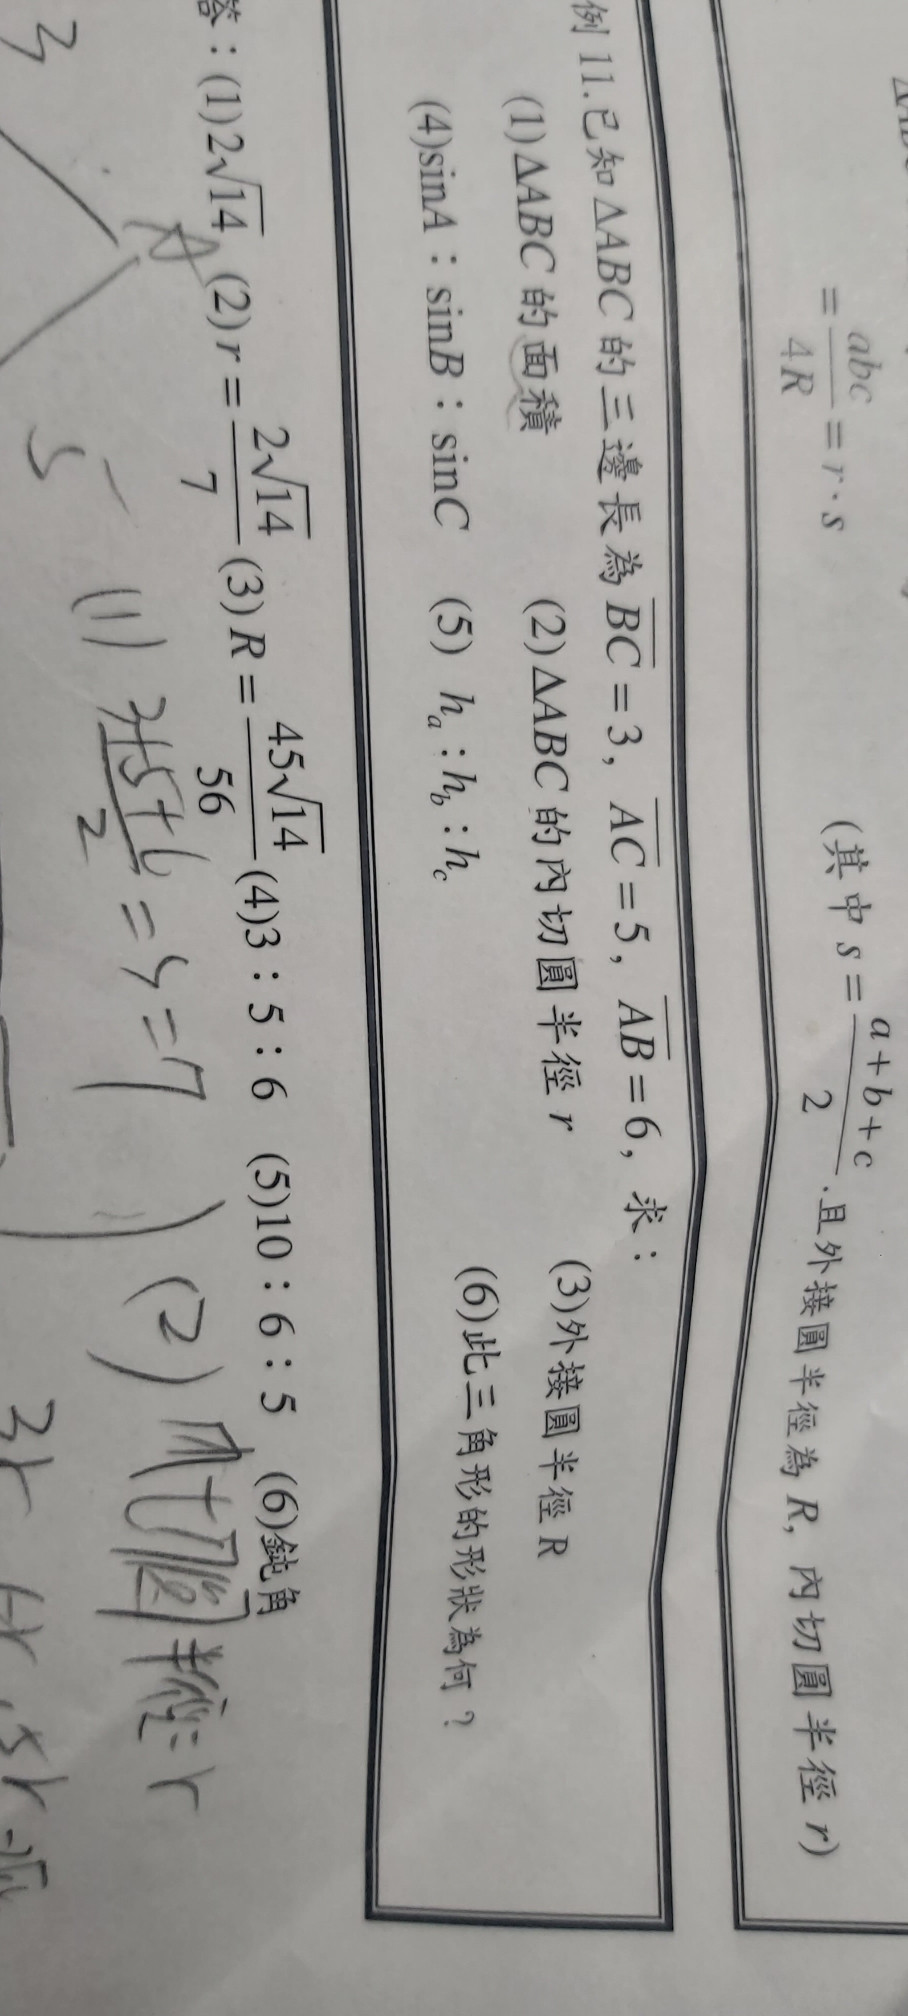 = abc/4R = r·s (其中 s = a+b+c/2 .且外接圓半徑為 R, 內切圓半徑 r)
例 11.已知 ΔABC 的三邊長為 BC = 3, AC = 5, AB = 6, 求：
(1)ΔABC 的面積 (2)ΔABC 的內切圓半徑 r (3)外接圓半徑 R
(4)sinA：sinB：sinC (5) hₐ : h_b : h_c (6)此三角形的形狀為何？
答：(1)2√14 (2) r = 2√14/7 (3) R = 45√14/56 (4)3：5：6 (5)10：6：5 (6)鈍角
A
3
5
(1) 3+5+6/2 = S = 7
(2) 內切圓半徑 = r